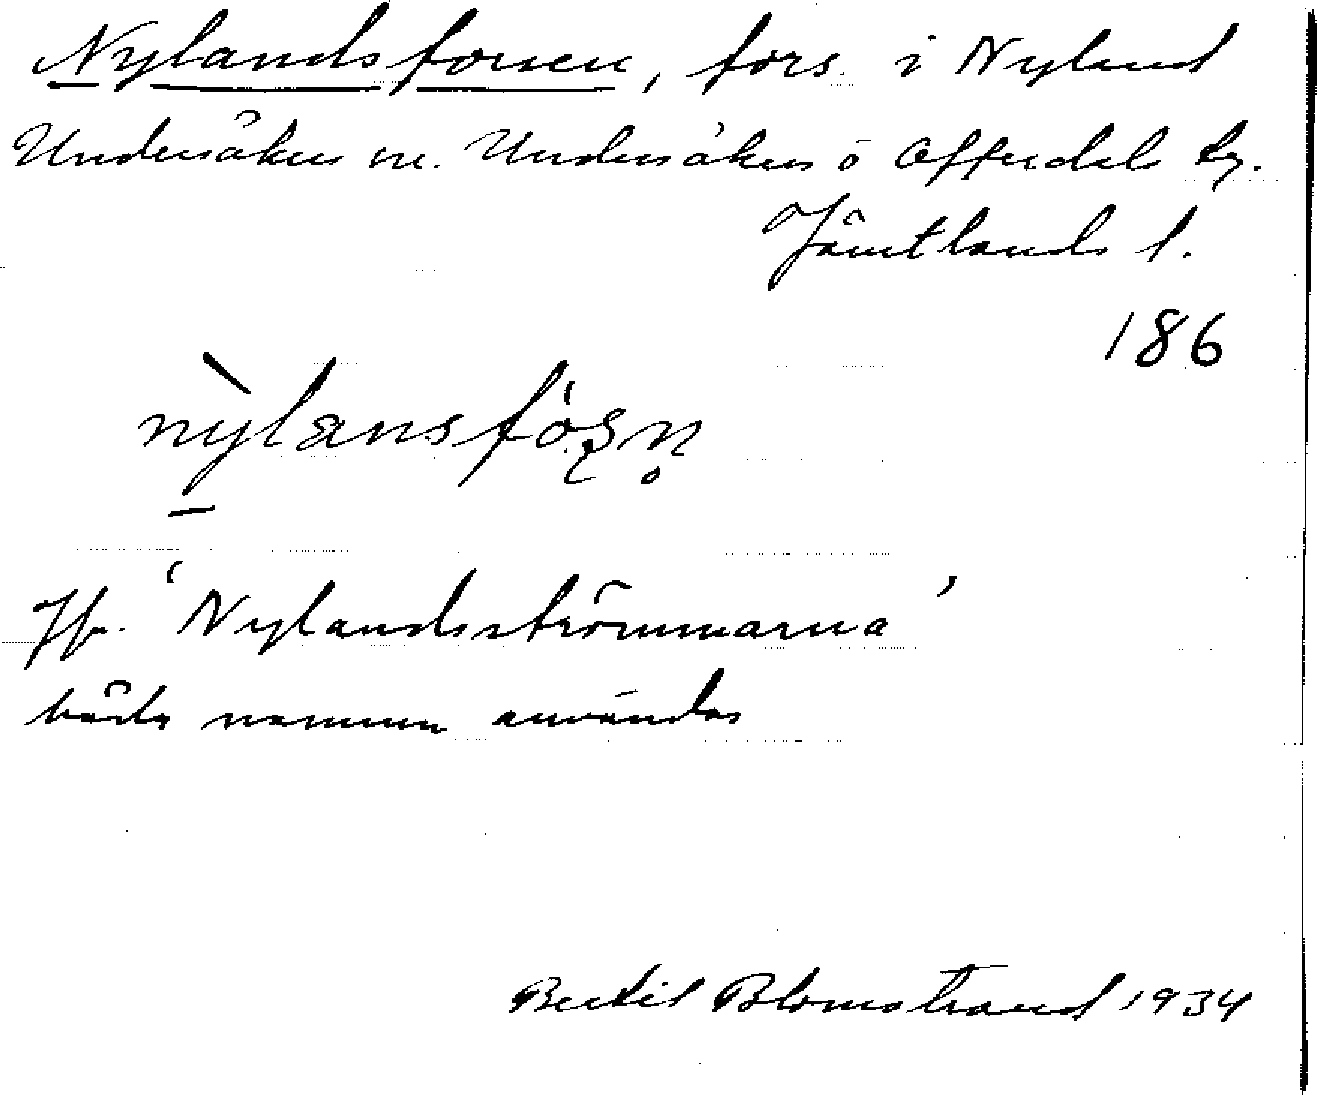 Nylandsforsen, fors i Nyland
Undersåkers sn. Undersåkers o Offerdals tg.
Jämtlands l.
186
nylansfösn
Jfr. 'Nylandsströmmarna'
båda namnen användas
Bertil Blomstrand 1934